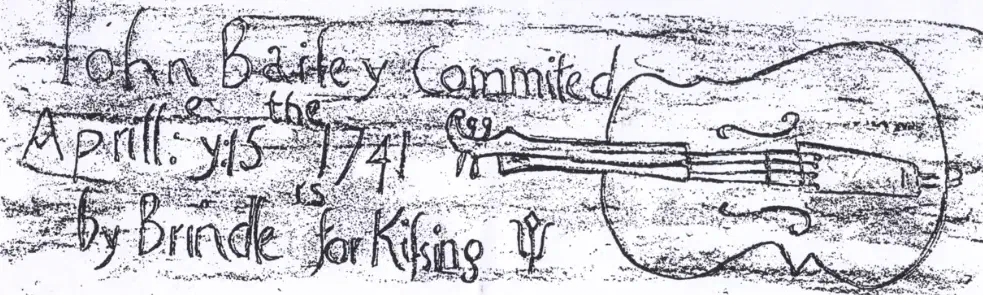 Iohn Bailey Commited
Aprill: yᵉ 15 the 1741
by Brindle is for Kiſsing